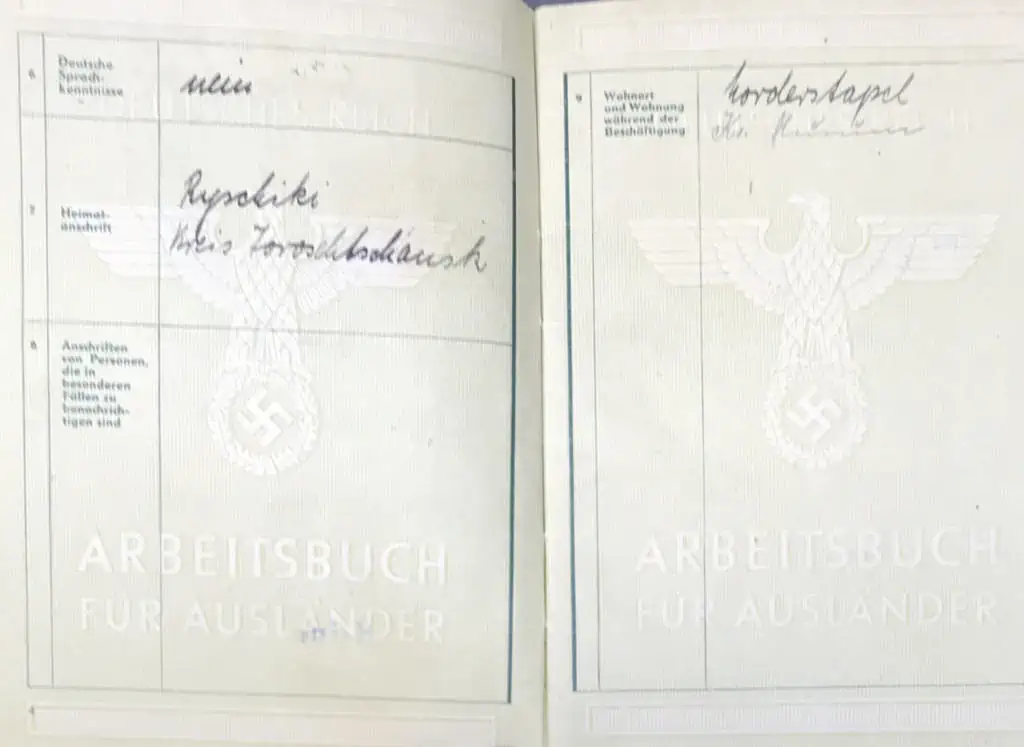 6
Deutsche
Sprach-
kenntnisse
nein
7
Heimat-
anschrift
Ryschiki
Kreis Joroschtschansk
8
Anschriften
von Personen,
die in
besonderen
Fällen zu
benachrich-
tigen sind
ARBEITSBUCH
FÜR AUSLÄNDER
4
9
Wohnort
und Wohnung
während der
Beschäftigung
Norderstapel
Kr.
ARBEITSBUCH
FÜR AUSLÄNDER